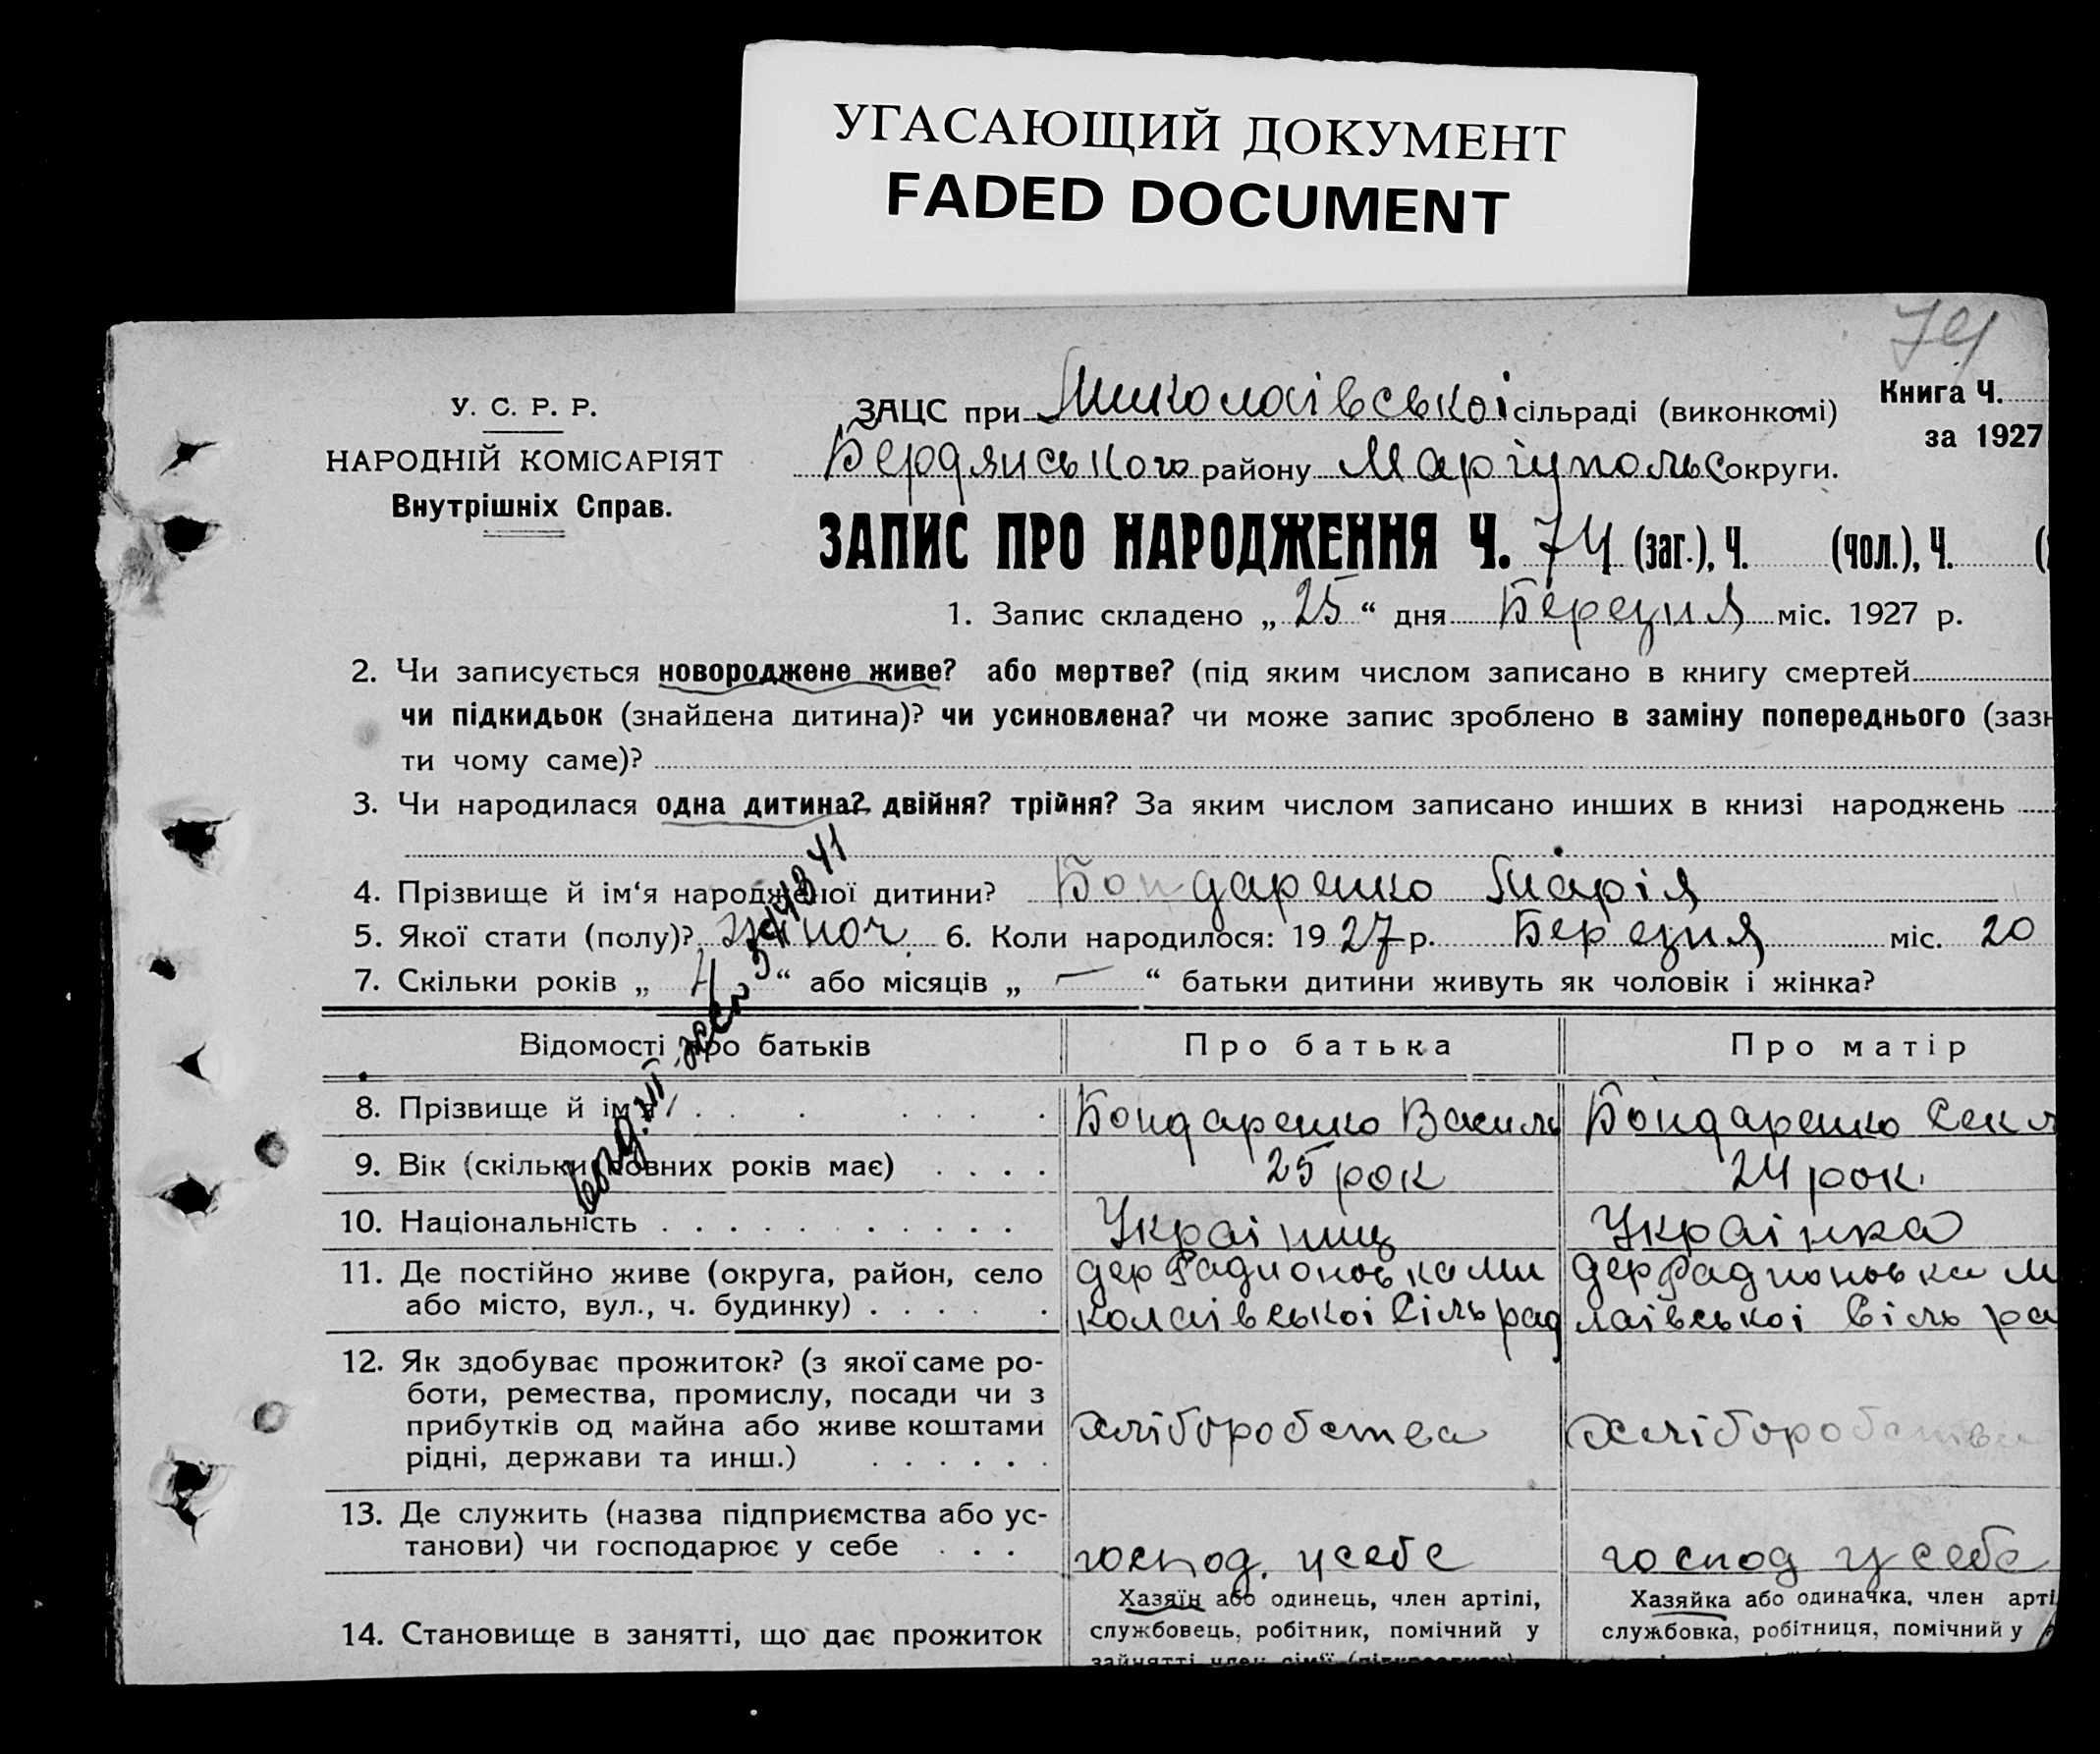 УГАСАЮЩИЙ ДОКУМЕНТ
FADED DOCUMENT
74
У. С. Р. Р.
НАРОДНІЙ КОМІСАРІЯТ
Внутрішніх Справ.
ЗАЦС при Миколаівськоі сільраді (виконкомі)
Книга Ч.
за 1927
Бердянського району Маріупольс округи.
ЗАПИС ПРО НАРОДЖЕННЯ Ч. 74 (заг.), Ч. (чол.), Ч. (
1. Запис складено „ 25 “ дня Березня міс. 1927 р.
2. Чи записується новороджене живе? або мертве? (під яким числом записано в книгу смертей
чи підкидьок (знайдена дитина)? чи усиновлена? чи може запис зроблено в заміну попереднього (зазн
ти чому саме)?
3. Чи народилася одна дитина? двійня? трійня? За яким числом записано инших в книзі народжень
4. Прізвище й ім‘я народженої дитини? Бондаренко Марія
5. Якої стати (полу)? жіноч 6. Коли народилося: 19 27 р. Березня міс. 20
7. Скільки років „ 4 “ або місяців „ — “ батьки дитини живуть як чоловік і жінка?
Відомості про батьків Про батька Про матір
8. Прізвище й ім‘я Бондаренко Василь Бондаренко Текл
9. Вік (скільки повних років має) 25 рок 24 рок.
10. Національність Украіниць Украінка
11. Де постійно живе (округа, район, село дер Радионовка Ми дер Радионовка М
або місто, вул., ч. будинку) колаівськоі Сільрад лаівськоі Сіль ра
12. Як здобуває прожиток? (з якої саме ро-
боти, ремества, промислу, посади чи з
прибутків од майна або живе коштами хліборобства хліборобства
рідні, держави та инш.)
13. Де служить (назва підприємства або ус-
танови) чи господарює у себе господ. у себе господ у себе
Хазяїн або одинець, член артілі, Хазяйка або одиначка, член арті
14. Становище в занятті, що дає прожиток службовець, робітник, помічний у службовка, робітниця, помічний у